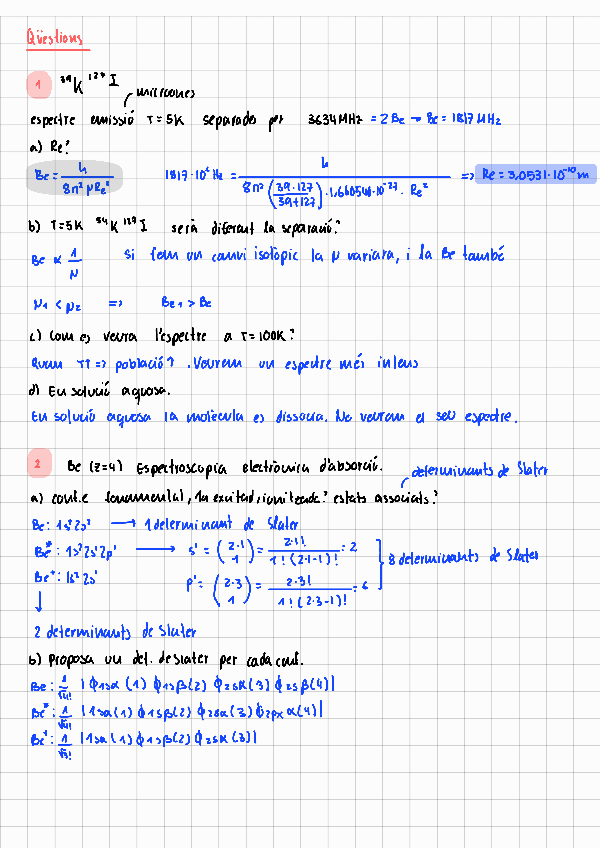 Qüestions
1 ³⁹K ¹²⁷I
microones
espectre emissió T=5K separades per 3634MHz = 2Be → Be = 1817 MHz
a) Re?
Be = h / 8π² μRe² 1817·10⁶ Hz = h / 8π² (39·127 / 39+127) · 1,660540·10⁻²⁷ · Re² => Re = 3,0531·10⁻¹⁰ m
b) T=5K K I serà diferent la separació?
Be ∝ 1/μ si fem un canvi isotòpic la μ variara, i la Be també
μ1 < μ2 => Be1 > Be
c) Com es veura l'espectre a T=100K?
Quan T↑ => població↑. Veurem un espectre més intens
d) En solució aquosa.
En solució aquosa la molècula es dissocia. No veurem el seu espectre.
2 Be (z=4) Espectroscopia electrònica d'absorció.
determinants de Slater
a) conf.e fonamental, 1a excitad, ionitzada? estats associats?
Be: 1s²2s² → 1 determinant de Slater
Be*: 1s²2s¹2p¹ → s¹ = (2·1 1) = 2·1! / 1!(2·1-1)! = 2
8 determinants de Slater
Be⁺: 1s² 2s¹ p¹ = (2·3 1) = 2·3! / 1!(2·3-1)! = 6
↓
2 determinants de Slater
b) Proposa un det. de slater per cada conf.
Be: 1/√4! |ϕ1sα(1) ϕ1sβ(2) ϕ2sα(3) ϕ2sβ(4)|
Be*: 1/√4! |1sα(1) ϕ1sβ(2) ϕ2sα(3) ϕ2px α(4)|
Be⁺: 1/√3! |1sα(1) ϕ1sβ(2) ϕ2sα(3)|